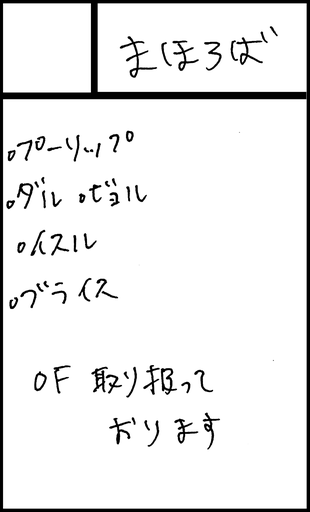 まほろば
。プーリップ
。ダル 。ビョル
。イスル
。ブライス
OF 取り扱って
おります